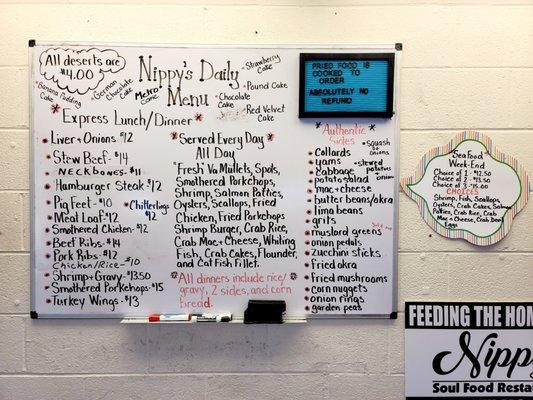 All deserts are
$4.00
Banana Pudding
Cake
German
Chocolate
Cake
Metro
Come
Nippy's Daily
Menu
Strawberry
Cake
Pound Cake
Chocolate
Cake
Red Velvet
Cake
Express Lunch/Dinner
Liver + Onions $12
Stew Beef - $14
NECKBONES - $11
Hamburger Steak - $12
Pig Feet - $10
Chitterlings
$12
Meat Loaf - $12
Smothered Chicken - $12
Beef Ribs - $14
Pork Ribs - $12
Chicken/Rice - $10
Shrimp + Gravy - $13.50
Smothered Porkchops - $15
Turkey Wings - $13
Served Every Day
All Day
"Fresh" Va Mullets, Spots,
Smothered Porkchops,
Shrimp, Salmon Patties,
Oysters, Scallops, Fried
Chicken, Fried Porkchops
Shrimp Burger, Crab Rice,
Crab Mac + Cheese, Whiting
Fish, Crab Cakes, Flounder,
and Cat Fish Fillet.
All dinners include rice/
gravy, 2 sides, and corn
bread.
FRIED FOOD IS
COOKED TO
ORDER
ABSOLUTELY NO
REFUND
Authentic
Sides
Collards
yams
cabbage
potato salad
mac + cheese
butter beans/okra
lima beans
grits
mustard greens
onion pedals
zucchini sticks
fried okra
fried mushrooms
corn nuggets
onion rings
garden peas
squash
onions
stewed
potatoes
onions
Seafood
Week-End
Choice of 1 - $12.50
Choice of 2 - $13.50
Choice of 3 - $15.00
CHOICES
Shrimp, Fish, Scallops,
Oysters, Crab Cakes, Salmon
Patties, Crab Rice, Crab
Mac + Cheese, Crab
Eggs
FEEDING THE HOM
Nippy
Soul Food Resta